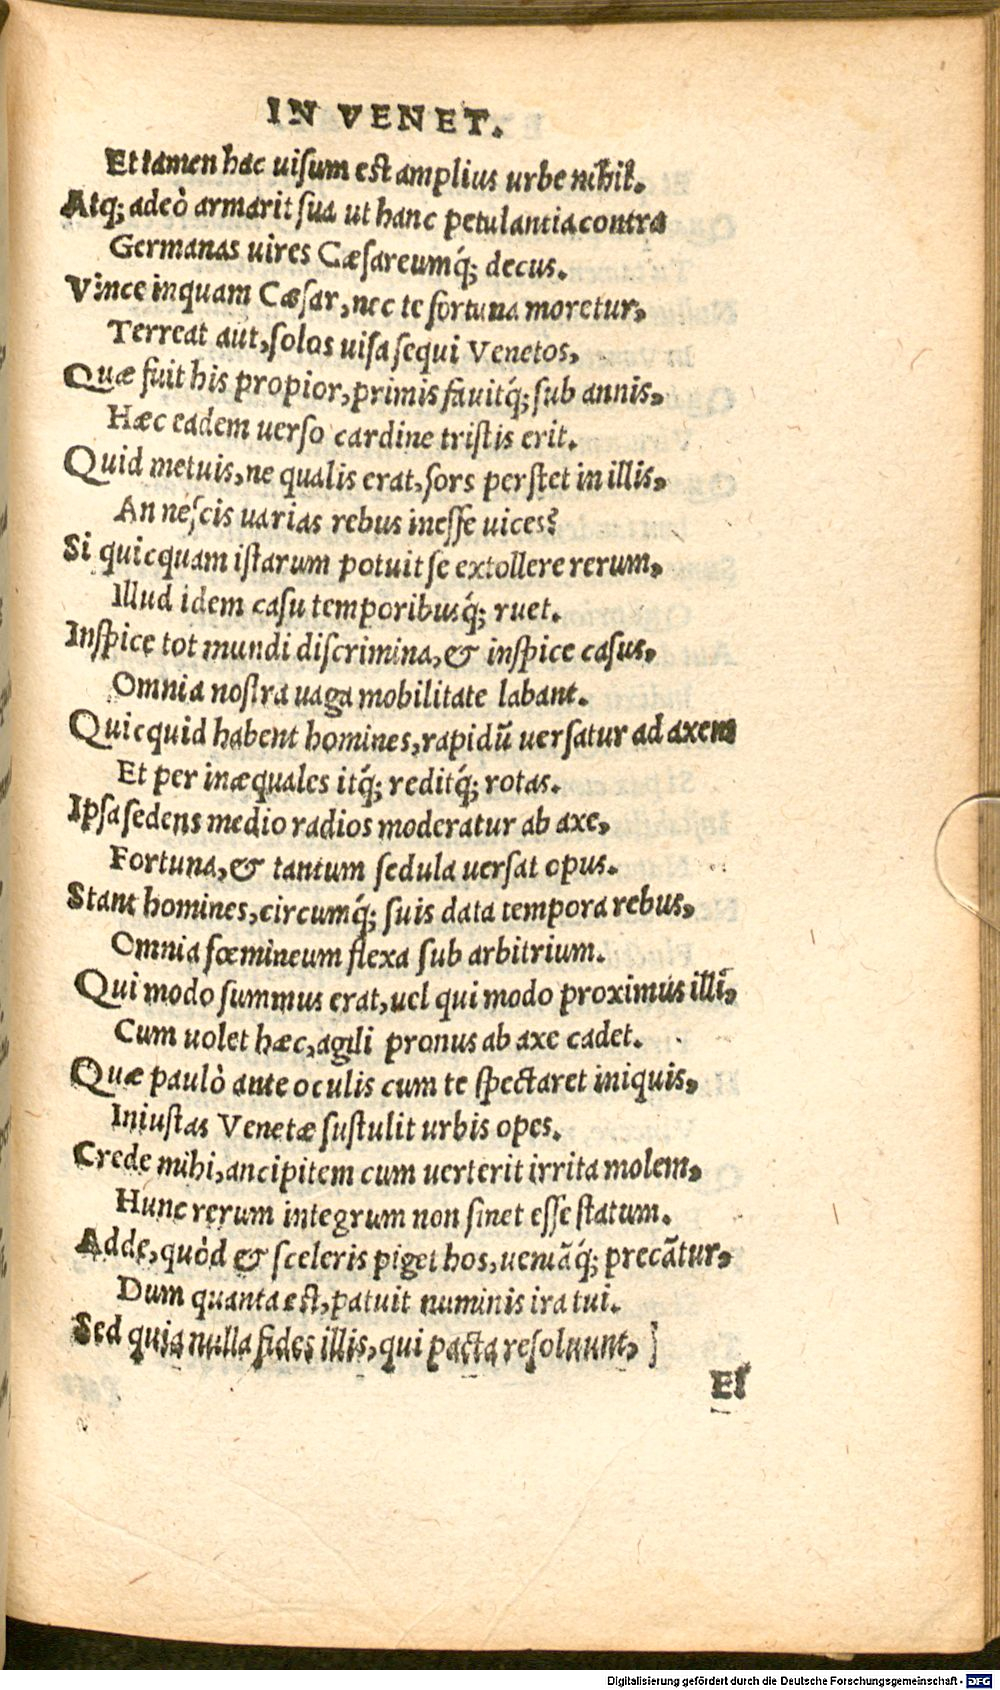 IN VENET.
Et tamen hac uisum est amplius urbe nihil.
Atq; adeò armarit sua ut hanc petulantia contra
Germanas uires Cæsareumq́; decus.
Vince inquam Cæsar, nec te fortuna moretur,
Terreat aut, solos uisa sequi Venetos,
Quæ fuit his propior, primis fauitq́; sub annis,
Hæc eadem uerso cardine tristis erit.
Quid metuis, ne qualis erat, sors perstet in illis,
An nescis uarias rebus inesse uices?
Si quicquam istarum potuit se extollere rerum,
Illud idem casu temporibusq́; ruet.
Inspice tot mundi discrimina, & inspice casus,
Omnia nostra uaga mobilitate labant.
Quicquid habent homines, rapidū uersatur ad axem
Et per inæquales itq́; reditq́; rotas.
Ipsa sedens medio radios moderatur ab axe,
Fortuna, & tantum sedula uersat opus.
Stant homines, circumq́; suis data tempora rebus,
Omnia fœmineum flexa sub arbitrium.
Qui modo summus erat, uel qui modo proximus illi,
Cum uolet hæc, agili pronus ab axe cadet.
Quæ paulò ante oculis cum te spectaret iniquis,
Iniustas Venetæ sustulit urbis opes.
Crede mihi, ancipitem cum uerterit irrita molem,
Hunc rerum integrum non sinet esse statum.
Adde, quòd & sceleris piget hos, ueniāq́; precātur,
Dum quanta est, patuit numinis ira tui.
Sed quia nulla fides illis, qui pacta resoluunt,
Et
Digitalisierung gefördert durch die Deutsche Forschungsgemeinschaft - DFG